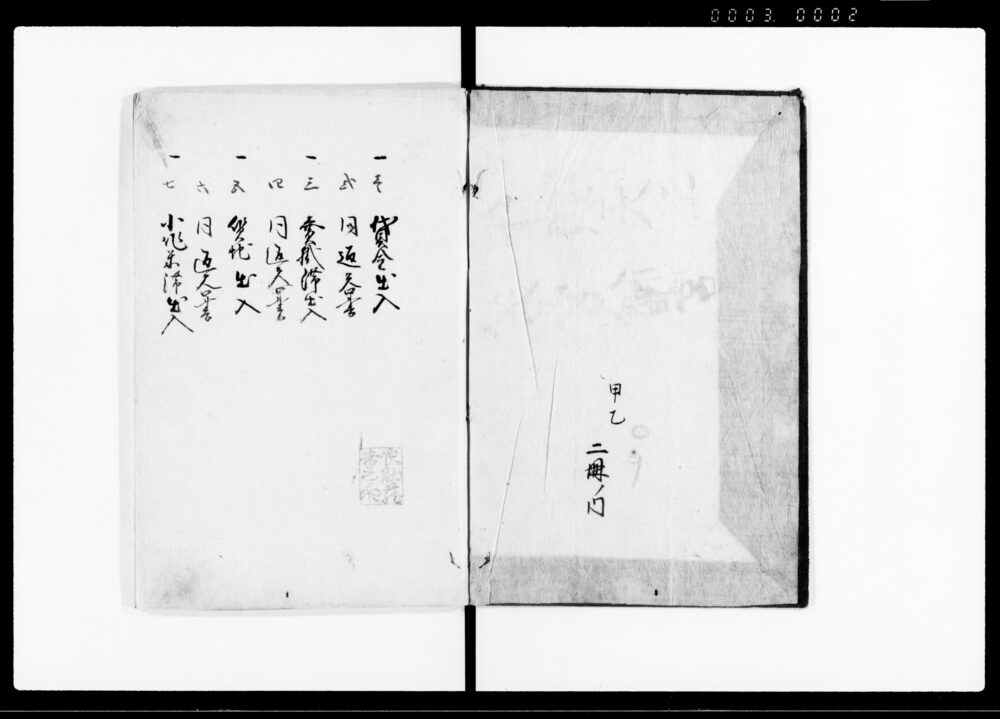 0003 0002
甲乙
二冊ノ内
一 壱 貸金出入
弐 同返答書
一 三 売掛滞出入
四 同返答書
一 五 質地出入
六 同返答書
一 七 小作米滞出入